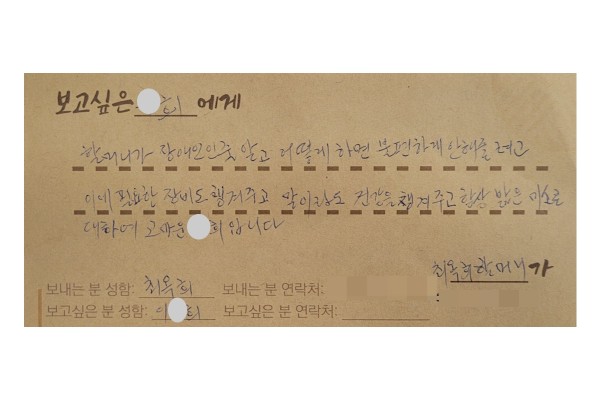 보고싶은 희 에게
할머니가 장애인인줄 알고 어떻게 하면 불편하게 안해줄려고
이네 필요한 장비도 챙겨주고 말이랑도 건강을 챙겨주고 항상 밝은 미소로
대하며 고마운 희 입니다
최옥희할머니가
보내는 분 성함: 최옥희 보내는 분 연락처:
보고싶은 분 성함: 이 희 보고싶은 분 연락처: